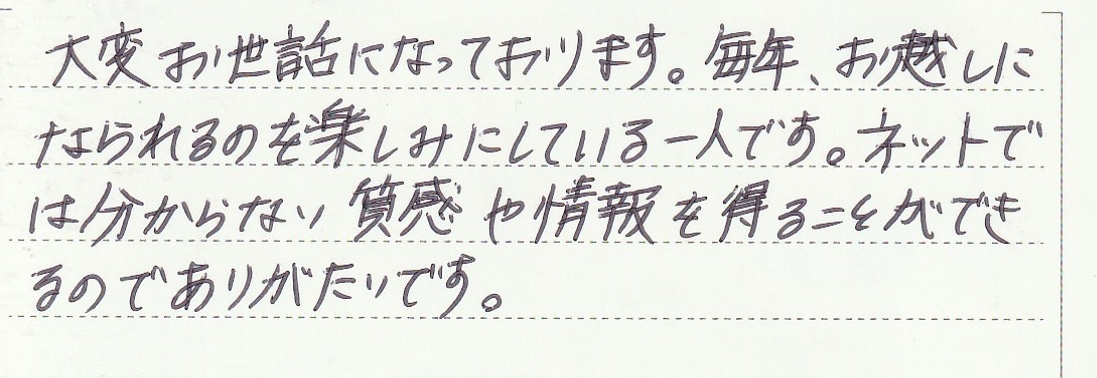 大変お世話になっております。毎年、お越しに
なられるのを楽しみにしている一人です。ネットで
は分からない質感や情報を得ることができ
るのでありがたいです。